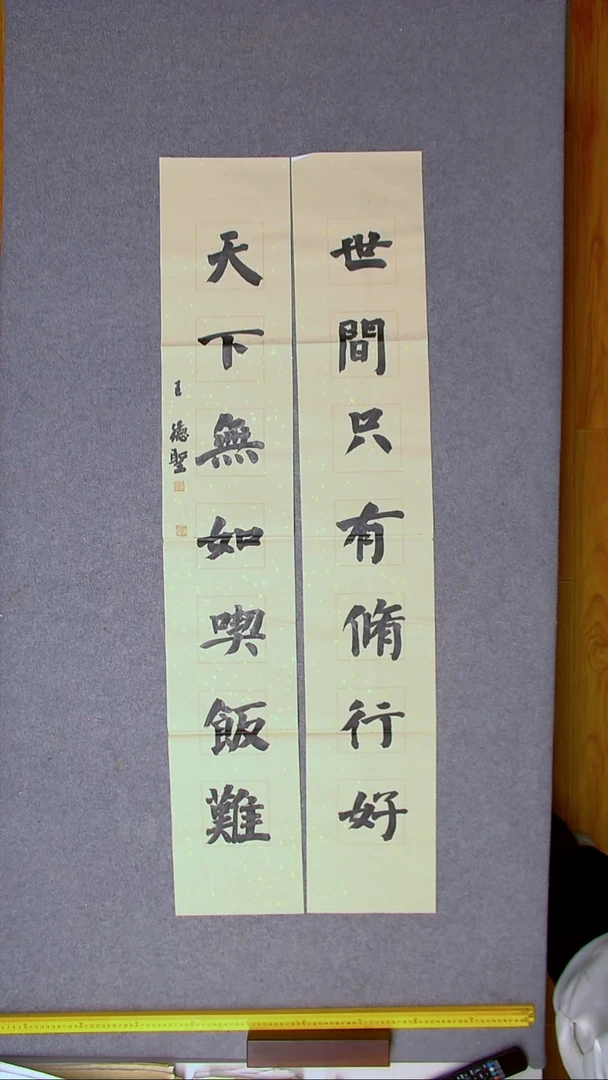 世間只有脩行好
天下無如喫飯難
王德聖